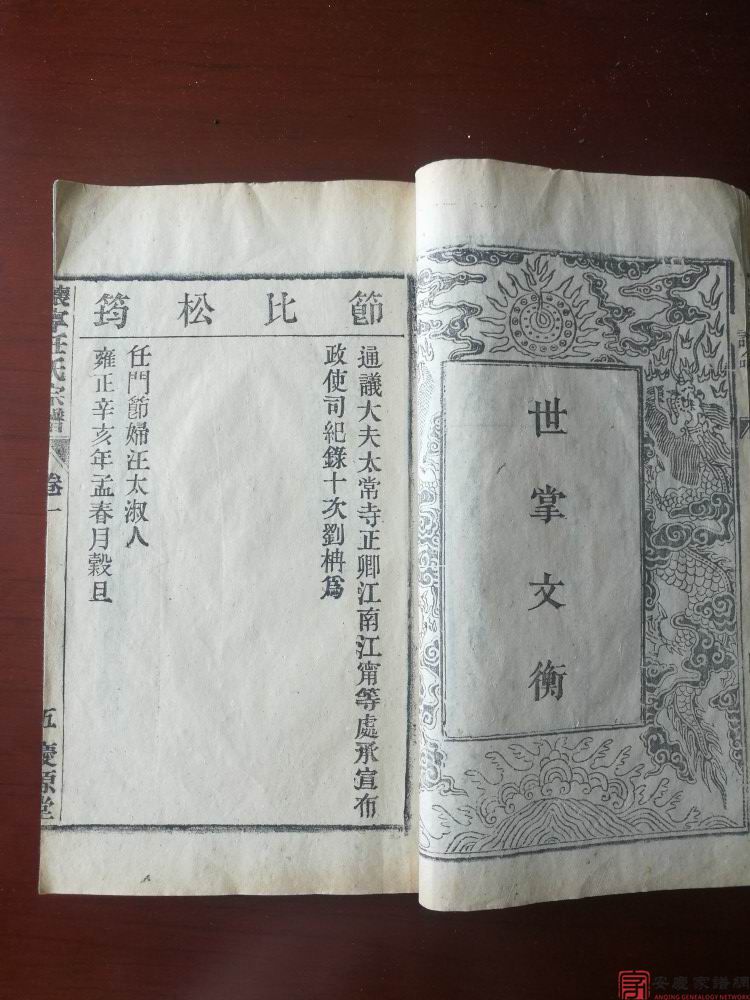 世掌文衡
節比松筠
通議大夫太常寺正卿江南江甯等處承宣布
政使司紀錄十次劉柟為
任門節婦汪太淑人
雍正辛亥年孟春月穀旦
懷寧任氏宗譜 卷一 五 慶源堂
安慶家譜網
ANQING GENEALOGY NETWORK